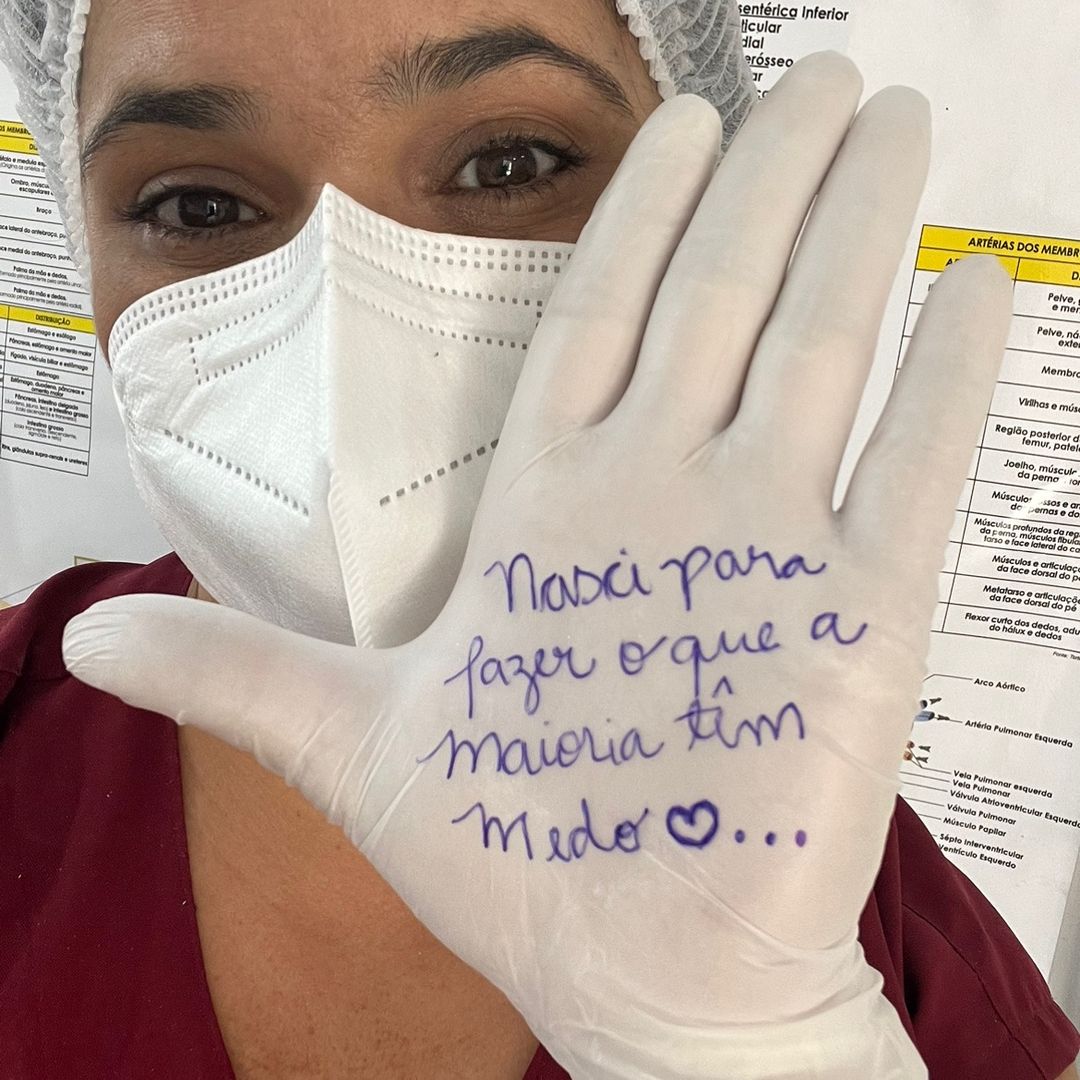 Nasci para
fazer o que a
maioria têm
medo ♡...
sentérica Inferior
ticular
dial
erósseo
ar
ARTÉRIAS DOS MEMBR
Pelve, g
e mer
Pelve, ná
exter
Membro
Virilhas e mús
Região posterior d
femur, patel
Joelho, múscul
da perna
Músculos
Músculos profundos da reg
da perna, músculos fibula
tarso e face lateral do ca
Músculos e articulaç
da face dorsal do p
Metatarso e articulaçõe
da face dorsal do pé
Flexor curto dos dedos, adu
do hálux e dedos
Arco Aórtico
Artéria Pulmonar Esquerda
Veia Pulmonar esquerda
Veia Pulmonar
Válvula Atrioventricular Esquerda
Válvula Pulmonar
Músculo Papilar
Sépto Interventricular
Ventrículo Esquerdo
OS MEMBR
Ombro, múscu
escapulares
Braço
Palma da mão e dedos
Palma da mão e dedos
DISTRIBUIÇÃO
Estômago e esôfago
Pâncreas, estômago e omento maior
Fígado, visícula biliar e estômago
Estômago
Estômago, duodeno, pâncreas e
omento maior
Pâncreas, intestino delgado
Intestino grosso
Rins, glândulas supra-renais e ureteres